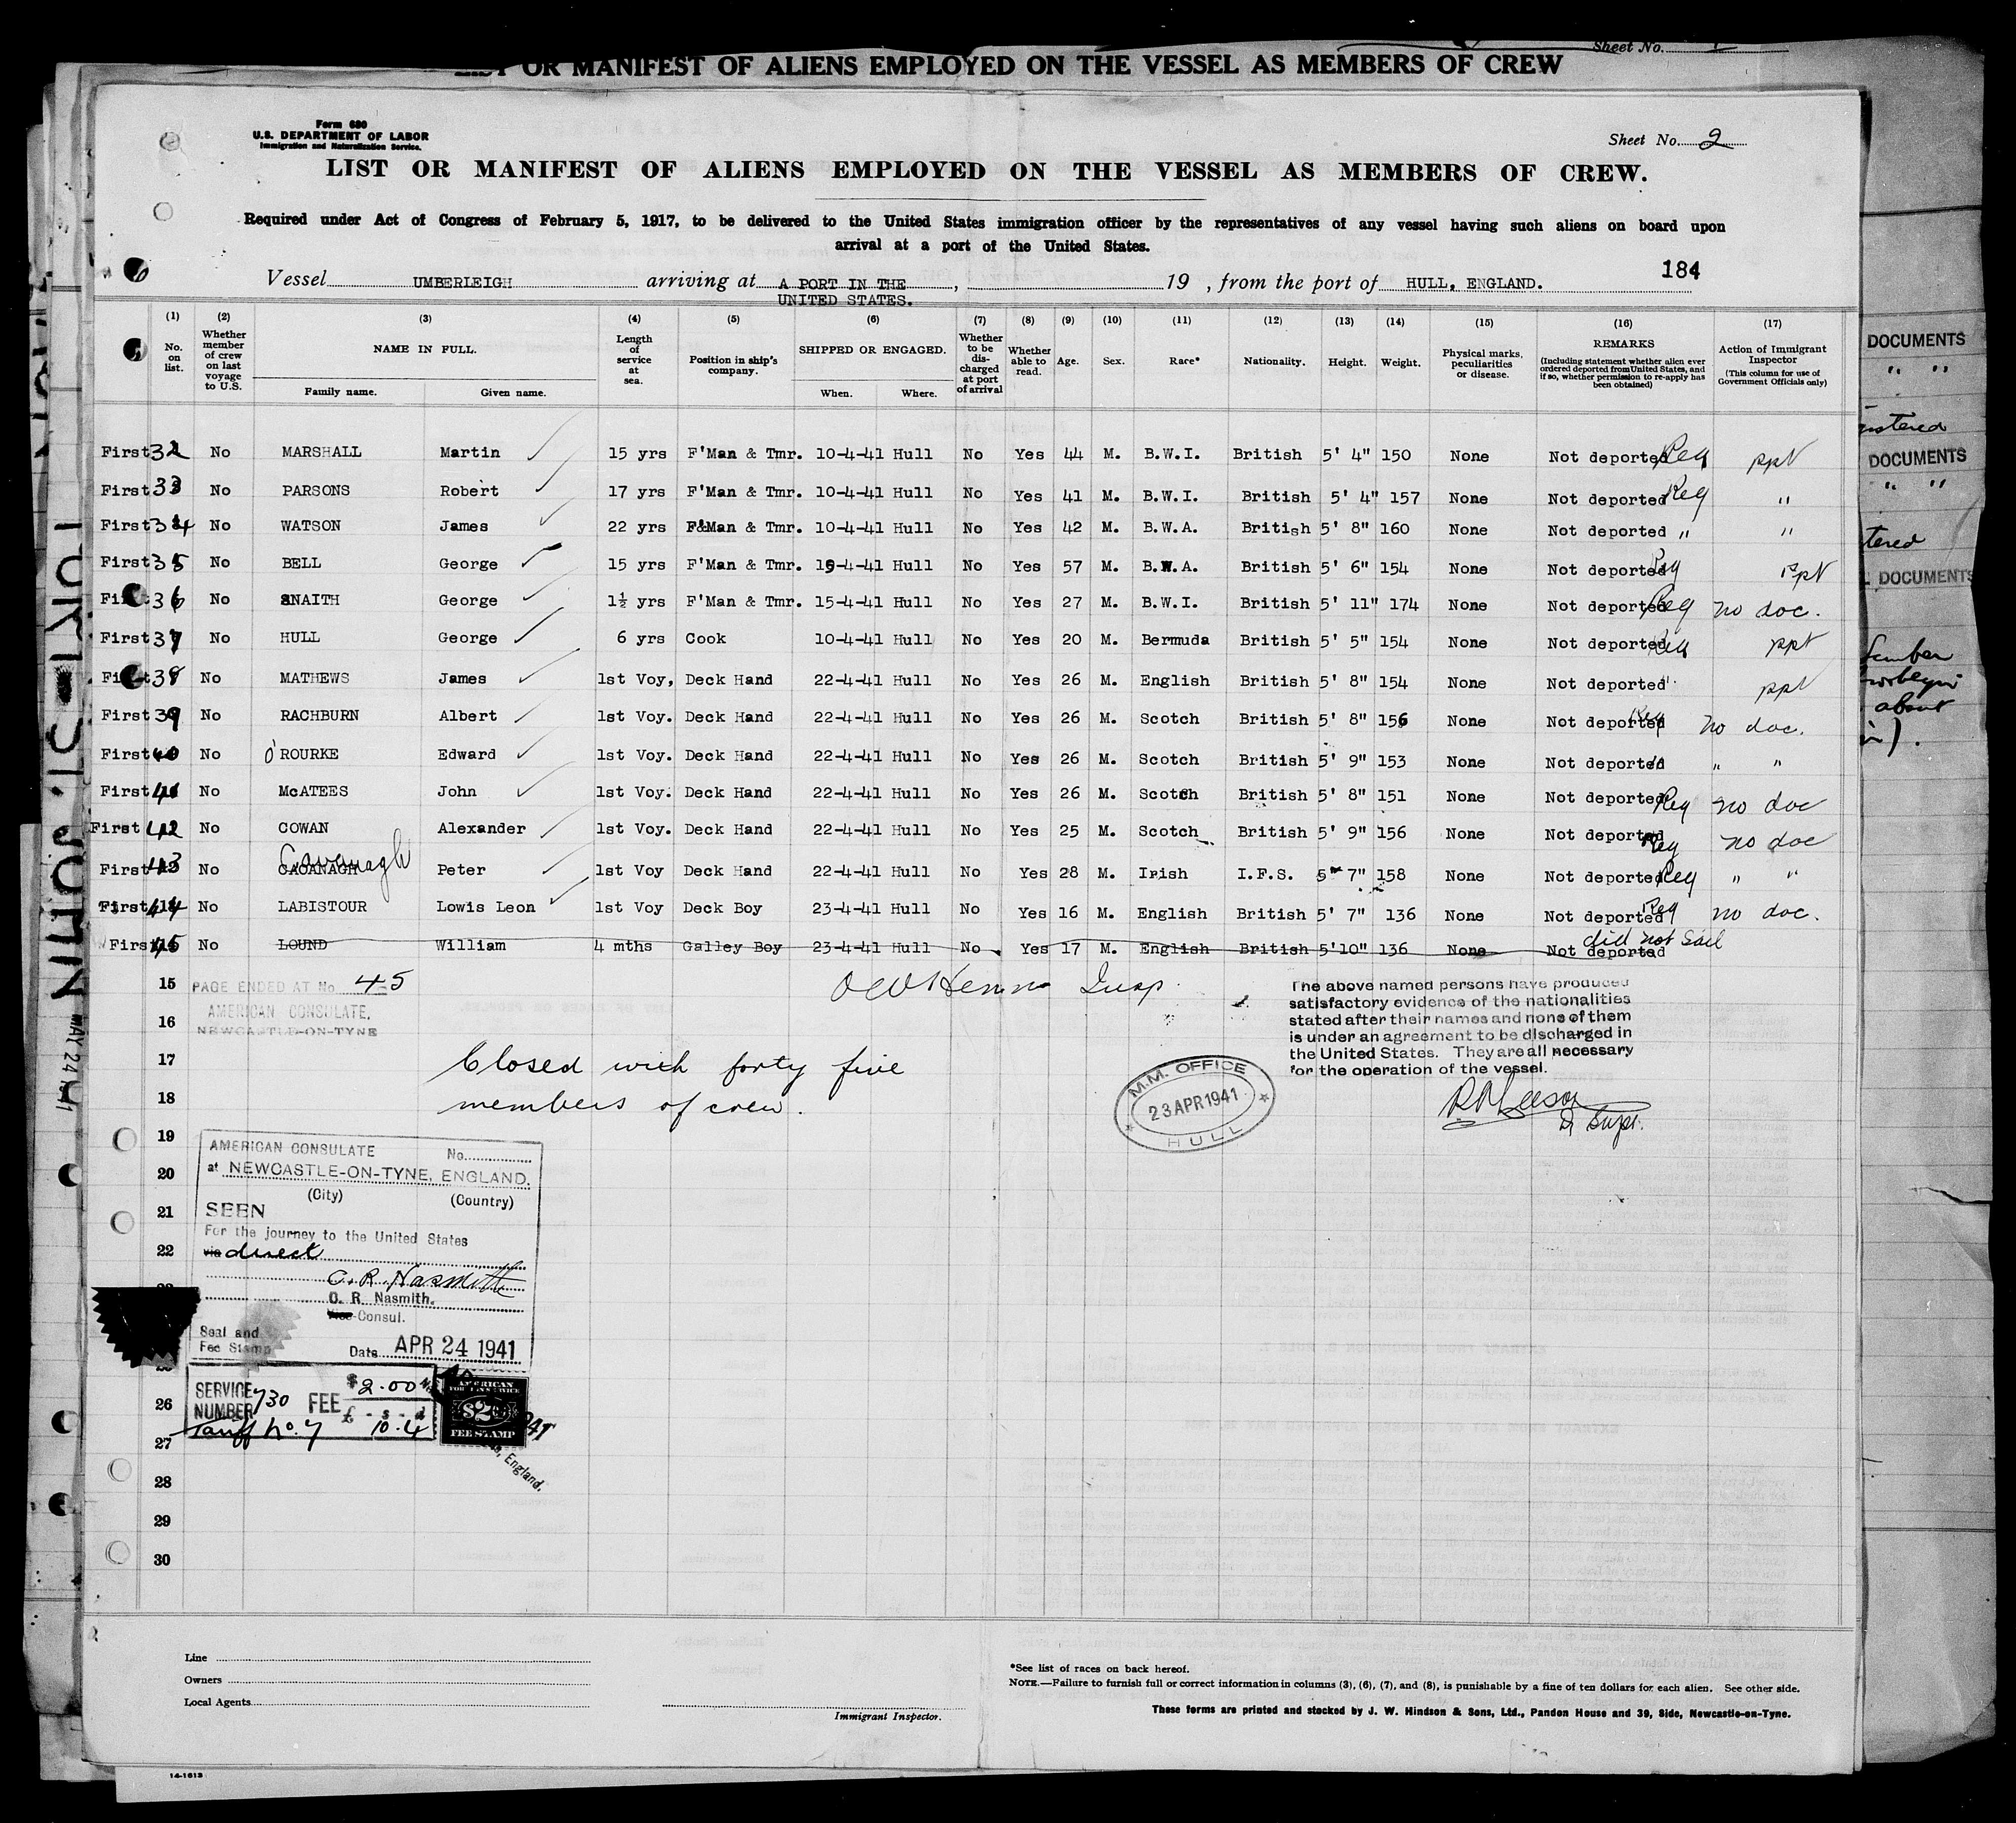 Sheet No.
LIST OR MANIFEST OF ALIENS EMPLOYED ON THE VESSEL AS MEMBERS OF CREW
Form 680
U.S. DEPARTMENT OF LABOR
Immigration and Naturalization Service.
Sheet No. 2
LIST OR MANIFEST OF ALIENS EMPLOYED ON THE VESSEL AS MEMBERS OF CREW.
Required under Act of Congress of February 5, 1917, to be delivered to the United States immigration officer by the representatives of any vessel having such aliens on board upon
arrival at a port of the United States.
184
Vessel UMBERLEIGH arriving at A PORT IN THE UNITED STATES. , 19 , from the port of HULL, ENGLAND.
(1) No. on list.
(2) Whether member of crew on last voyage to U.S.
(3) NAME IN FULL.
Family name. Given name.
(4) Length of service at sea.
(5) Position in ship's company.
(6) SHIPPED OR ENGAGED.
When. Where.
(7) Whether to be discharged at port of arrival
(8) Whether able to read.
(9) Age.
(10) Sex.
(11) Race*
(12) Nationality.
(13) Height.
(14) Weight.
(15) Physical marks, peculiarities or disease.
(16) REMARKS
(Including statement whether alien ever ordered deported from United States, and if so, whether permission to re-apply has been obtained)
(17) Action of Immigrant Inspector
(This column for use of Government Officials only)
First 32 No MARSHALL Martin 15 yrs F'Man & Tmr. 10-4-41 Hull No Yes 44 M. B.W.I. British 5' 4" 150 None Not deported Reg ppt
First 33 No PARSONS Robert 17 yrs F'Man & Tmr. 10-4-41 Hull No Yes 41 M. B.W.I. British 5' 4" 157 None Not deported Reg "
First 34 No WATSON James 22 yrs F'Man & Tmr. 10-4-41 Hull No Yes 42 M. B.W.A. British 5' 8" 160 None Not deported " "
First 35 No BELL George 15 yrs F'Man & Tmr. 15-4-41 Hull No Yes 57 M. B.W.A. British 5' 6" 154 None Not deported Reg ppt
First 36 No SNAITH George 1½ yrs F'Man & Tmr. 15-4-41 Hull No Yes 27 M. B.W.I. British 5' 11" 174 None Not deported Reg no doc.
First 37 No HULL George 6 yrs Cook 10-4-41 Hull No Yes 20 M. Bermuda British 5' 5" 154 None Not deported Reg ppt
First 38 No MATHEWS James 1st Voy, Deck Hand 22-4-41 Hull No Yes 26 M. English British 5' 8" 154 None Not deported " ppt
First 39 No RACHBURN Albert 1st Voy. Deck Hand 22-4-41 Hull No Yes 26 M. Scotch British 5' 8" 156 None Not deported Reg no doc.
First 40 No O'ROURKE Edward 1st Voy. Deck Hand 22-4-41 Hull No Yes 26 M. Scotch British 5' 9" 153 None Not deported " " "
First 41 No McATEES John 1st Voy. Deck Hand 22-4-41 Hull No Yes 26 M. Scotch British 5' 8" 151 None Not deported Reg no doc
First 42 No COWAN Alexander 1st Voy. Deck Hand 22-4-41 Hull No Yes 25 M. Scotch British 5' 9" 156 None Not deported Reg no doc
First 43 No CACANAGH Cavanagh Peter 1st Voy Deck Hand 22-4-41 Hull No Yes 28 M. Irish I.F.S. 5' 7" 158 None Not deported Reg " "
First 44 No LABISTOUR Lowis Leon 1st Voy Deck Boy 23-4-41 Hull No Yes 16 M. English British 5' 7" 136 None Not deported Reg no doc.
First 45 No LOUND William 4 mths Galley Boy 23-4-41 Hull No Yes 17 M. English British 5'10" 136 None Not deported did not sail
15 PAGE ENDED AT No. 45
AMERICAN CONSULATE,
NEWCASTLE-ON-TYNE
Insp.
The above named persons have produced
satisfactory evidence of the nationalities
stated after their names and none of them
is under an agreement to be discharged in
the United States. They are all necessary
for the operation of the vessel.
16
17
18
Closed with forty five
members of crew.
M.M. OFFICE
23 APR 1941
HULL
Supt.
19
20
21
22
AMERICAN CONSULATE No.
at NEWCASTLE-ON-TYNE, ENGLAND.
(City) (Country)
SEEN
For the journey to the United States
via direct
C. R. Nasmith
C. R. Nasmith.
Vice-Consul.
Seal and
Fee Stamp
Date APR 24 1941
SERVICE NUMBER 730 FEE $2.00
£ - s - d
Tariff No. 7 10.4
AMERICAN
FOREIGN SERVICE
$2
FEE STAMP
England.
26
27
28
29
30
Line
Owners
Local Agents
Immigrant Inspector.
*See list of races on back hereof.
NOTE.—Failure to furnish full or correct information in columns (3), (6), (7), and (8), is punishable by a fine of ten dollars for each alien. See other side.
These forms are printed and stocked by J. W. Hindson & Sons, Ltd., Pandon House and 39, Side, Newcastle-on-Tyne.
14-1613
DOCUMENTS
" "
DOCUMENTS
" "
DOCUMENTS
about
MAY 24 1941